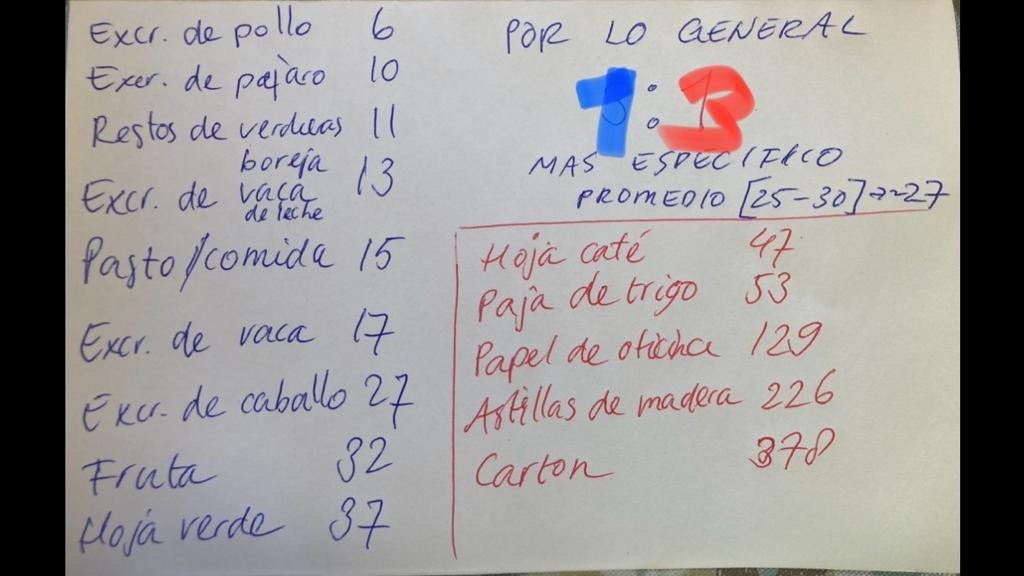 Excr. de pollo 6
Excr. de pajàro 10
Restos de verduras 11
boreja
Excr. de vaca 13
de leche
Pasto/comida 15
Excr. de vaca 17
Excr. de caballo 27
Fruta 32
Hoja verde 37
POR LO GENERAL
1:3
MAS ESPECIFICO
PROMEDIO [25-30]→~27
Hoja café 47
Paja de trigo 53
Papel de oficina 129
Astillas de madera 226
Carton 378